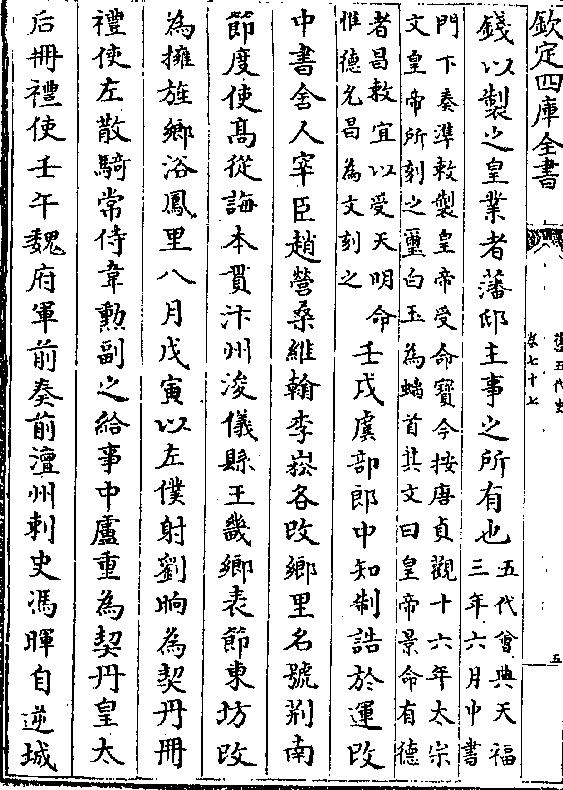 欽定四庫全書
舊五代史
卷七十七
五
錢以製之皇業者藩邸主事之所有也
五代會典天福
三年六月中書
門下奏準敕製皇帝受命寶今按唐貞觀十六年太宗
文皇帝所刻之璽白玉為螭首其文曰皇帝景命有德
者昌敕宜以受天明命
惟德允昌為文刻之
壬戌虞部郎中知制誥於運改
中書舍人宰臣趙瑩桑維翰李崧各改鄉里名號荆南
節度使髙從誨本貫汴州浚儀縣王畿鄉表節東坊改
為擁旌鄉浴鳳里八月戊寅以左僕射劉昫為契丹冊
禮使左散騎常侍韋勳副之給事中盧重為契丹皇太
后冊禮使壬午魏府軍前奏前澶州刺史馮暉自逆城